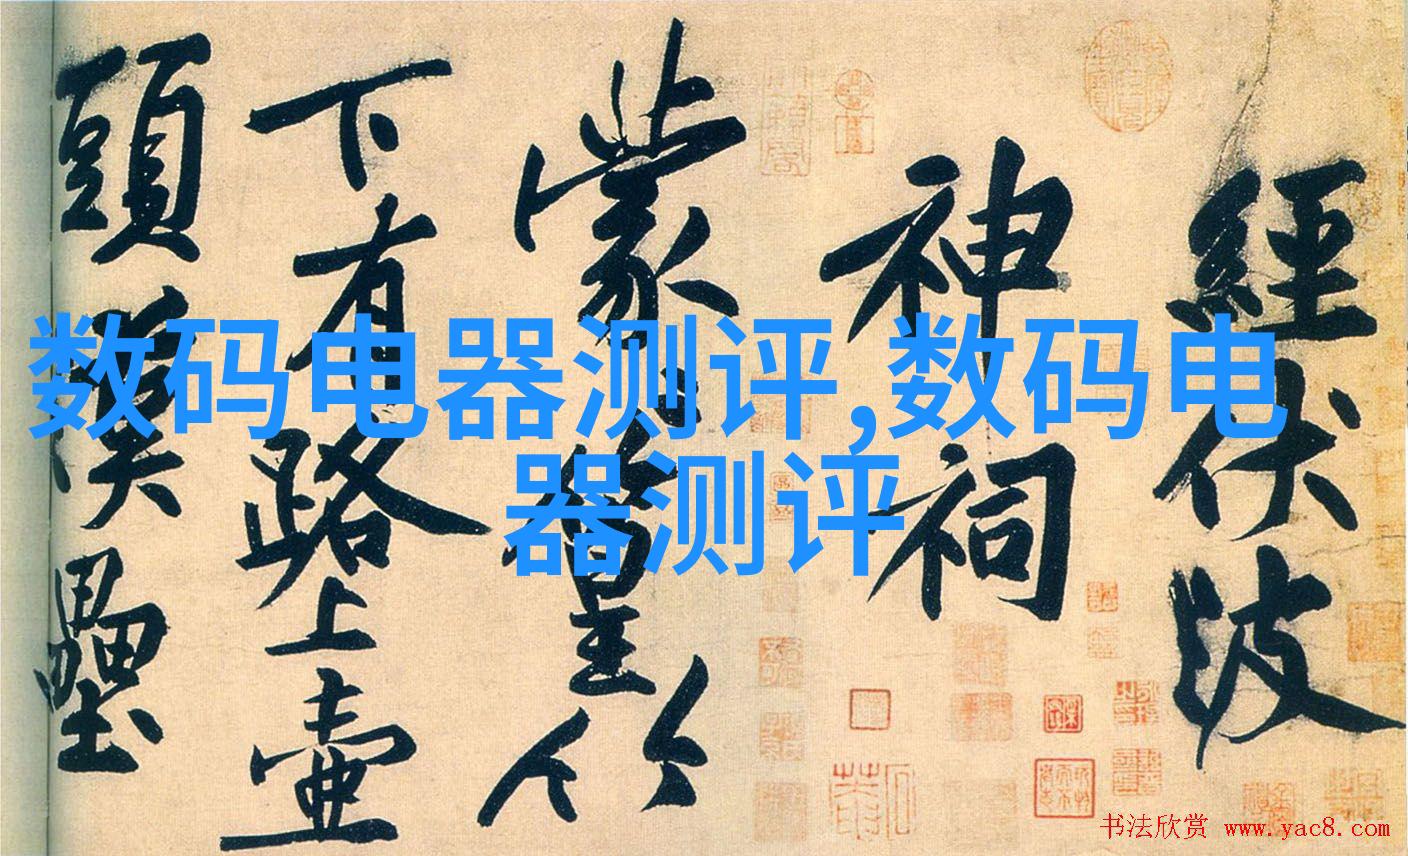 經伏波
神祠
蒙蒙篁竹
下有路上壺
頭漢壘
数码电器测评,数码电
器测评
书法欣赏 www.yac8.com